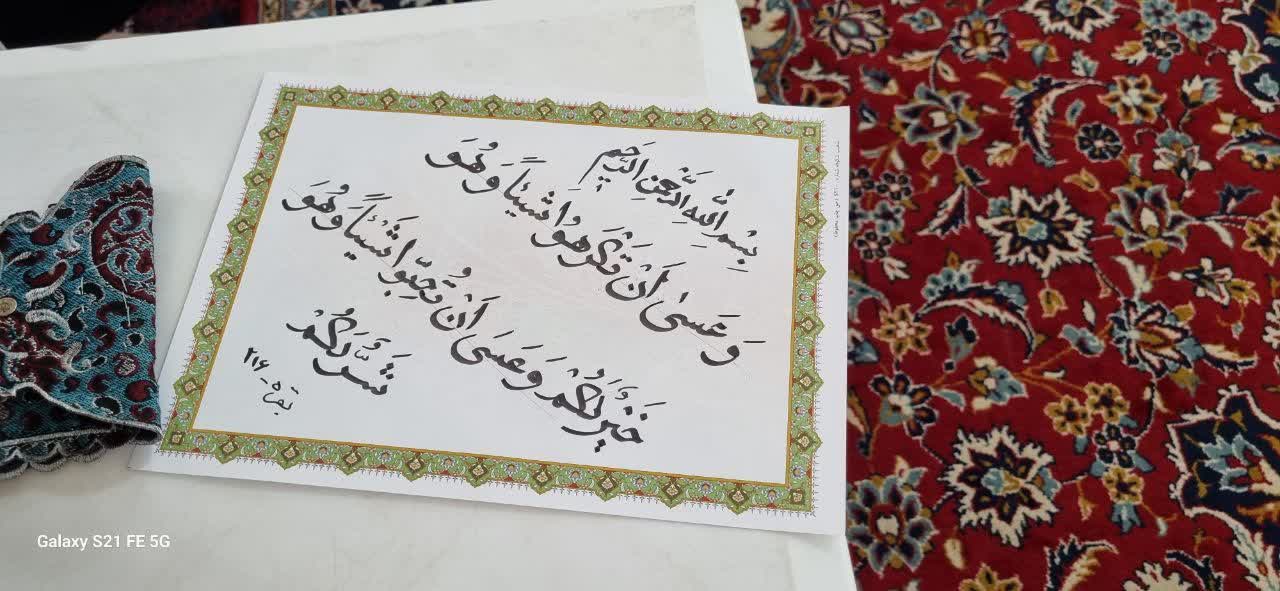 بِسْمِ اللهِ الرَّحْمنِ الرَّحيمِ
وَ عَسىٰ أَنْ تَكْرَهوُا شَيْئاً وَ هُوَ
خَيْرٌ لَكُمْ وَ عَسَى أَنْ تُحِبّوُا شَيْئاً وَ هُوَ
شَرٌّ لَكُمْ
بقره ـ ۲۱۶
Galaxy S21 FE 5G